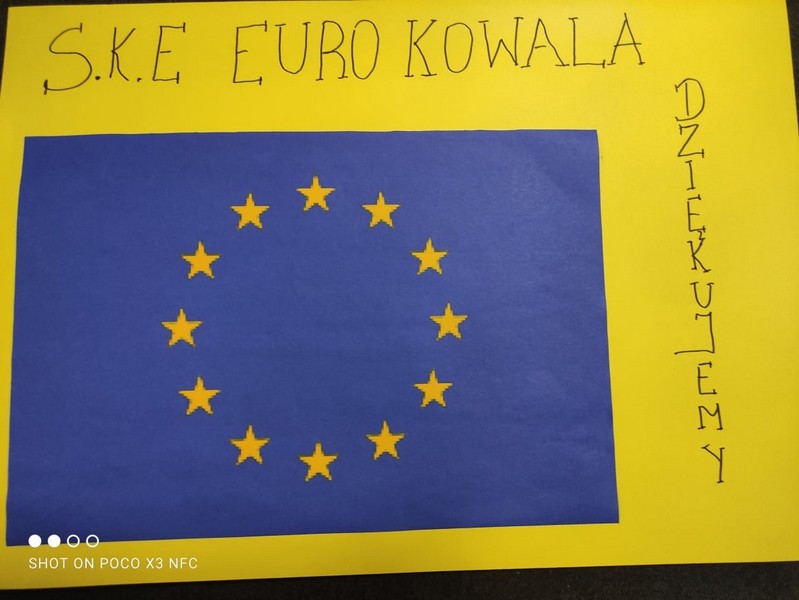 S.K.E EURO KOWALA
DZIĘKUJEMY
SHOT ON POCO X3 NFC